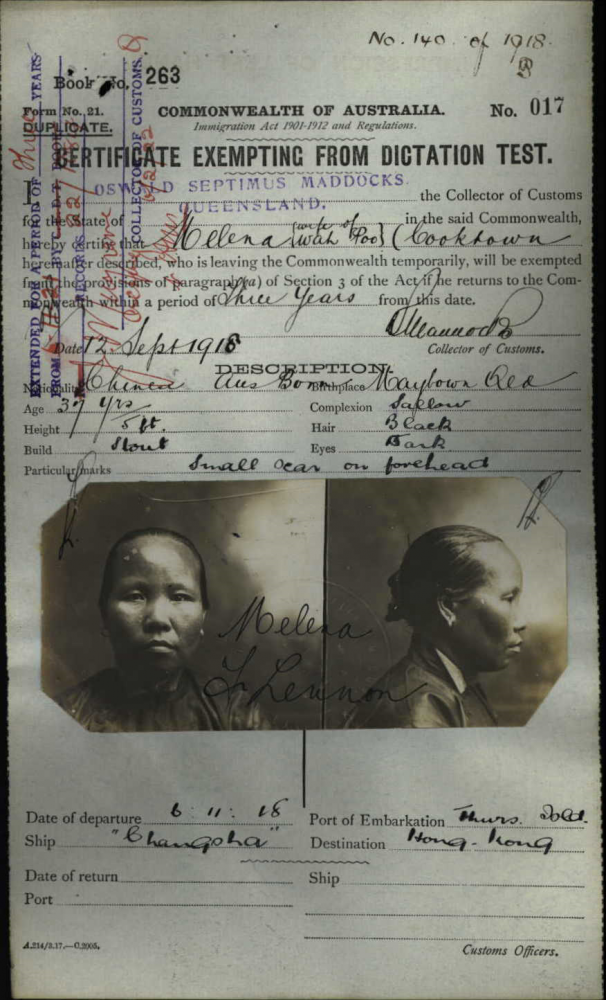 No. 140 of 1918.
Book No. 263
Form No. 21.
COMMONWEALTH OF AUSTRALIA.
No. 017
DUPLICATE.
Immigration Act 1901-1912 and Regulations.
CERTIFICATE EXEMPTING FROM DICTATION TEST.
I OSWALD SEPTIMUS MADDOCKS. the Collector of Customs
QUEENSLAND.
for the State of in the said Commonwealth,
hereby certify that Melena {wife of Wah Foo} (Cooktown
hereinafter described, who is leaving the Commonwealth temporarily, will be exempted
from the provisions of paragraph (a) of Section 3 of the Act if he returns to the Com-
monwealth within a period of Three Years from this date.
Date 12 Sept 1918
Collector of Customs.
DESCRIPTION.
Nationality Chinese Aus Born Birthplace Maytown Qld
Age 37 yrs Complexion Sallow
Height 5 ft. Hair Black
Build Stout Eyes Dark
Particular marks Small scar on forehead
EXTENDED FOR A PERIOD OF Three YEARS
COLLECTOR OF CUSTOMS.
Melena
Lennon
Date of departure 6 : 11 : 18 Port of Embarkation Thurs. Isld.
Ship "Changsha" Destination Hong-Kong
Date of return Ship
Port
A.214/3.17.—C.3905.
Customs Officers.